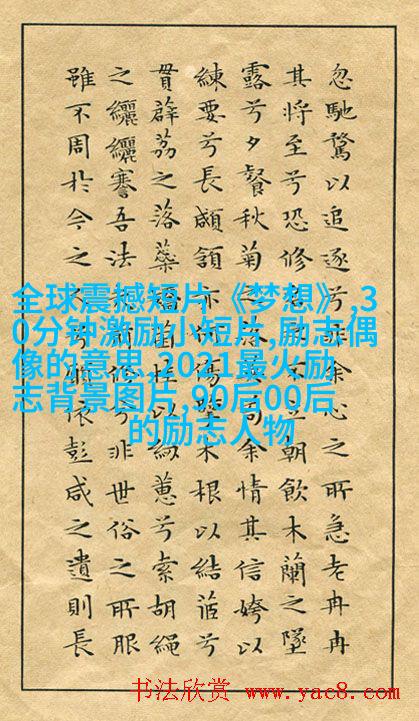 忽馳騖以追逐兮非余心之所急老冉冉
其將至兮恐修名之不立朝飲木蘭之墜
露兮夕餐秋菊之落英苟余情其信姱以
練要兮長顑頷亦何傷擥木根以結茝兮
貫薜荔之落蘂矯菌桂以紉蕙兮索胡繩
之纚纚謇吾法修兮非世俗之所服
雖不周於今之人兮願依彭咸之遺則長
全球震撼短片《梦想》,3
0分钟激励小短片,励志偶
像的意思,2021最火励
志背景图片,90后00后
的励志人物
书法欣赏 www.yac8.com